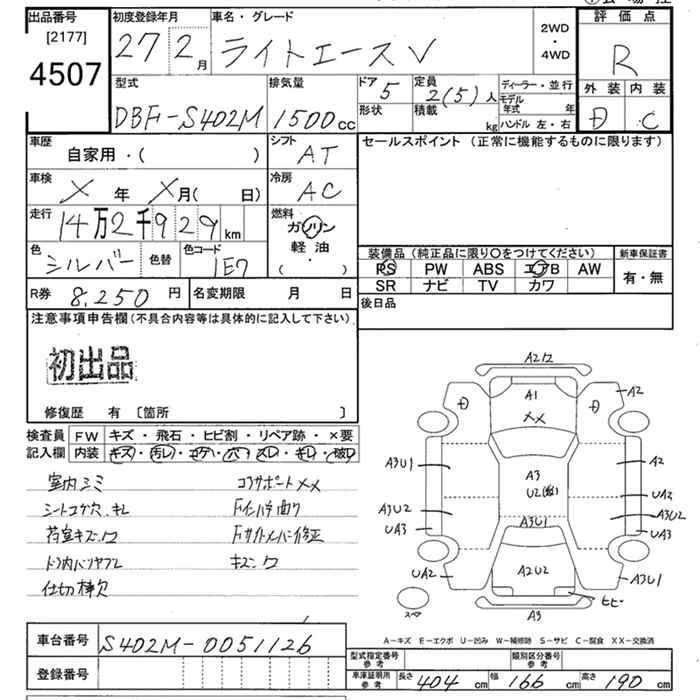 出品番号
[2177]
4507
初度登録年月
27 2月
車名・グレード
ライトエースV
2WD
・
4WD
評価点
R
外装 内装
D C
型式
DBF-S402M
排気量
1500cc
ドア 5
形状
定員 2(5)人
積載 kg
ディーラー・並行
モデル年式 年
ハンドル 左・右
車歴
自家用・( )
シフト
AT
セールスポイント (正常に機能するものに限ります)
車検
X年 X月( 日)
冷房
AC
走行
14万2千929km
燃料
ガソリン
軽油
( )
色
シルバー
色替
色コード
1E7
装備品 (純正品に限り〇をつけてください)
PS PW ABS エアB AW
SR ナビ TV カワ
新車保証書
有・無
R券 8,250円
名変期限 月 日
後日品
注意事項申告欄(不具合内容等は具体的に記入して下さい)
初出品
修復歴 有 〔箇所 〕
検査員 FW キズ・飛石・ヒビ割・リペア跡・×要
記入欄 内装 キズ・汚レ・コゲ・穴・スレ・キレ・破レ
室内シミ コアサポートXX
シートコゲ穴、キレ Fインパネ曲り
荷室キズ、ワ Fサイドメンバー修正
ドア内バリヤブレ キズ、ワ
仕切棒欠
A2ワ
A1
XX
D
D
A2
A3U1
A2
A3
U2
UA2
A3U2
A3U2
UA3
UA3
A3U1
UA2
A2U2
A3U1
ヒビ
A3
スペア
A-キズ E-エクボ U-凹み W-補修跡 S-サビ C-腐食 XX-交換済
車台番号 S402M-0051126
登録番号
型式指定番号 参考
類別区分番号 参考
車庫証明用 参考 長さ 404cm 幅 166cm 高さ 190cm